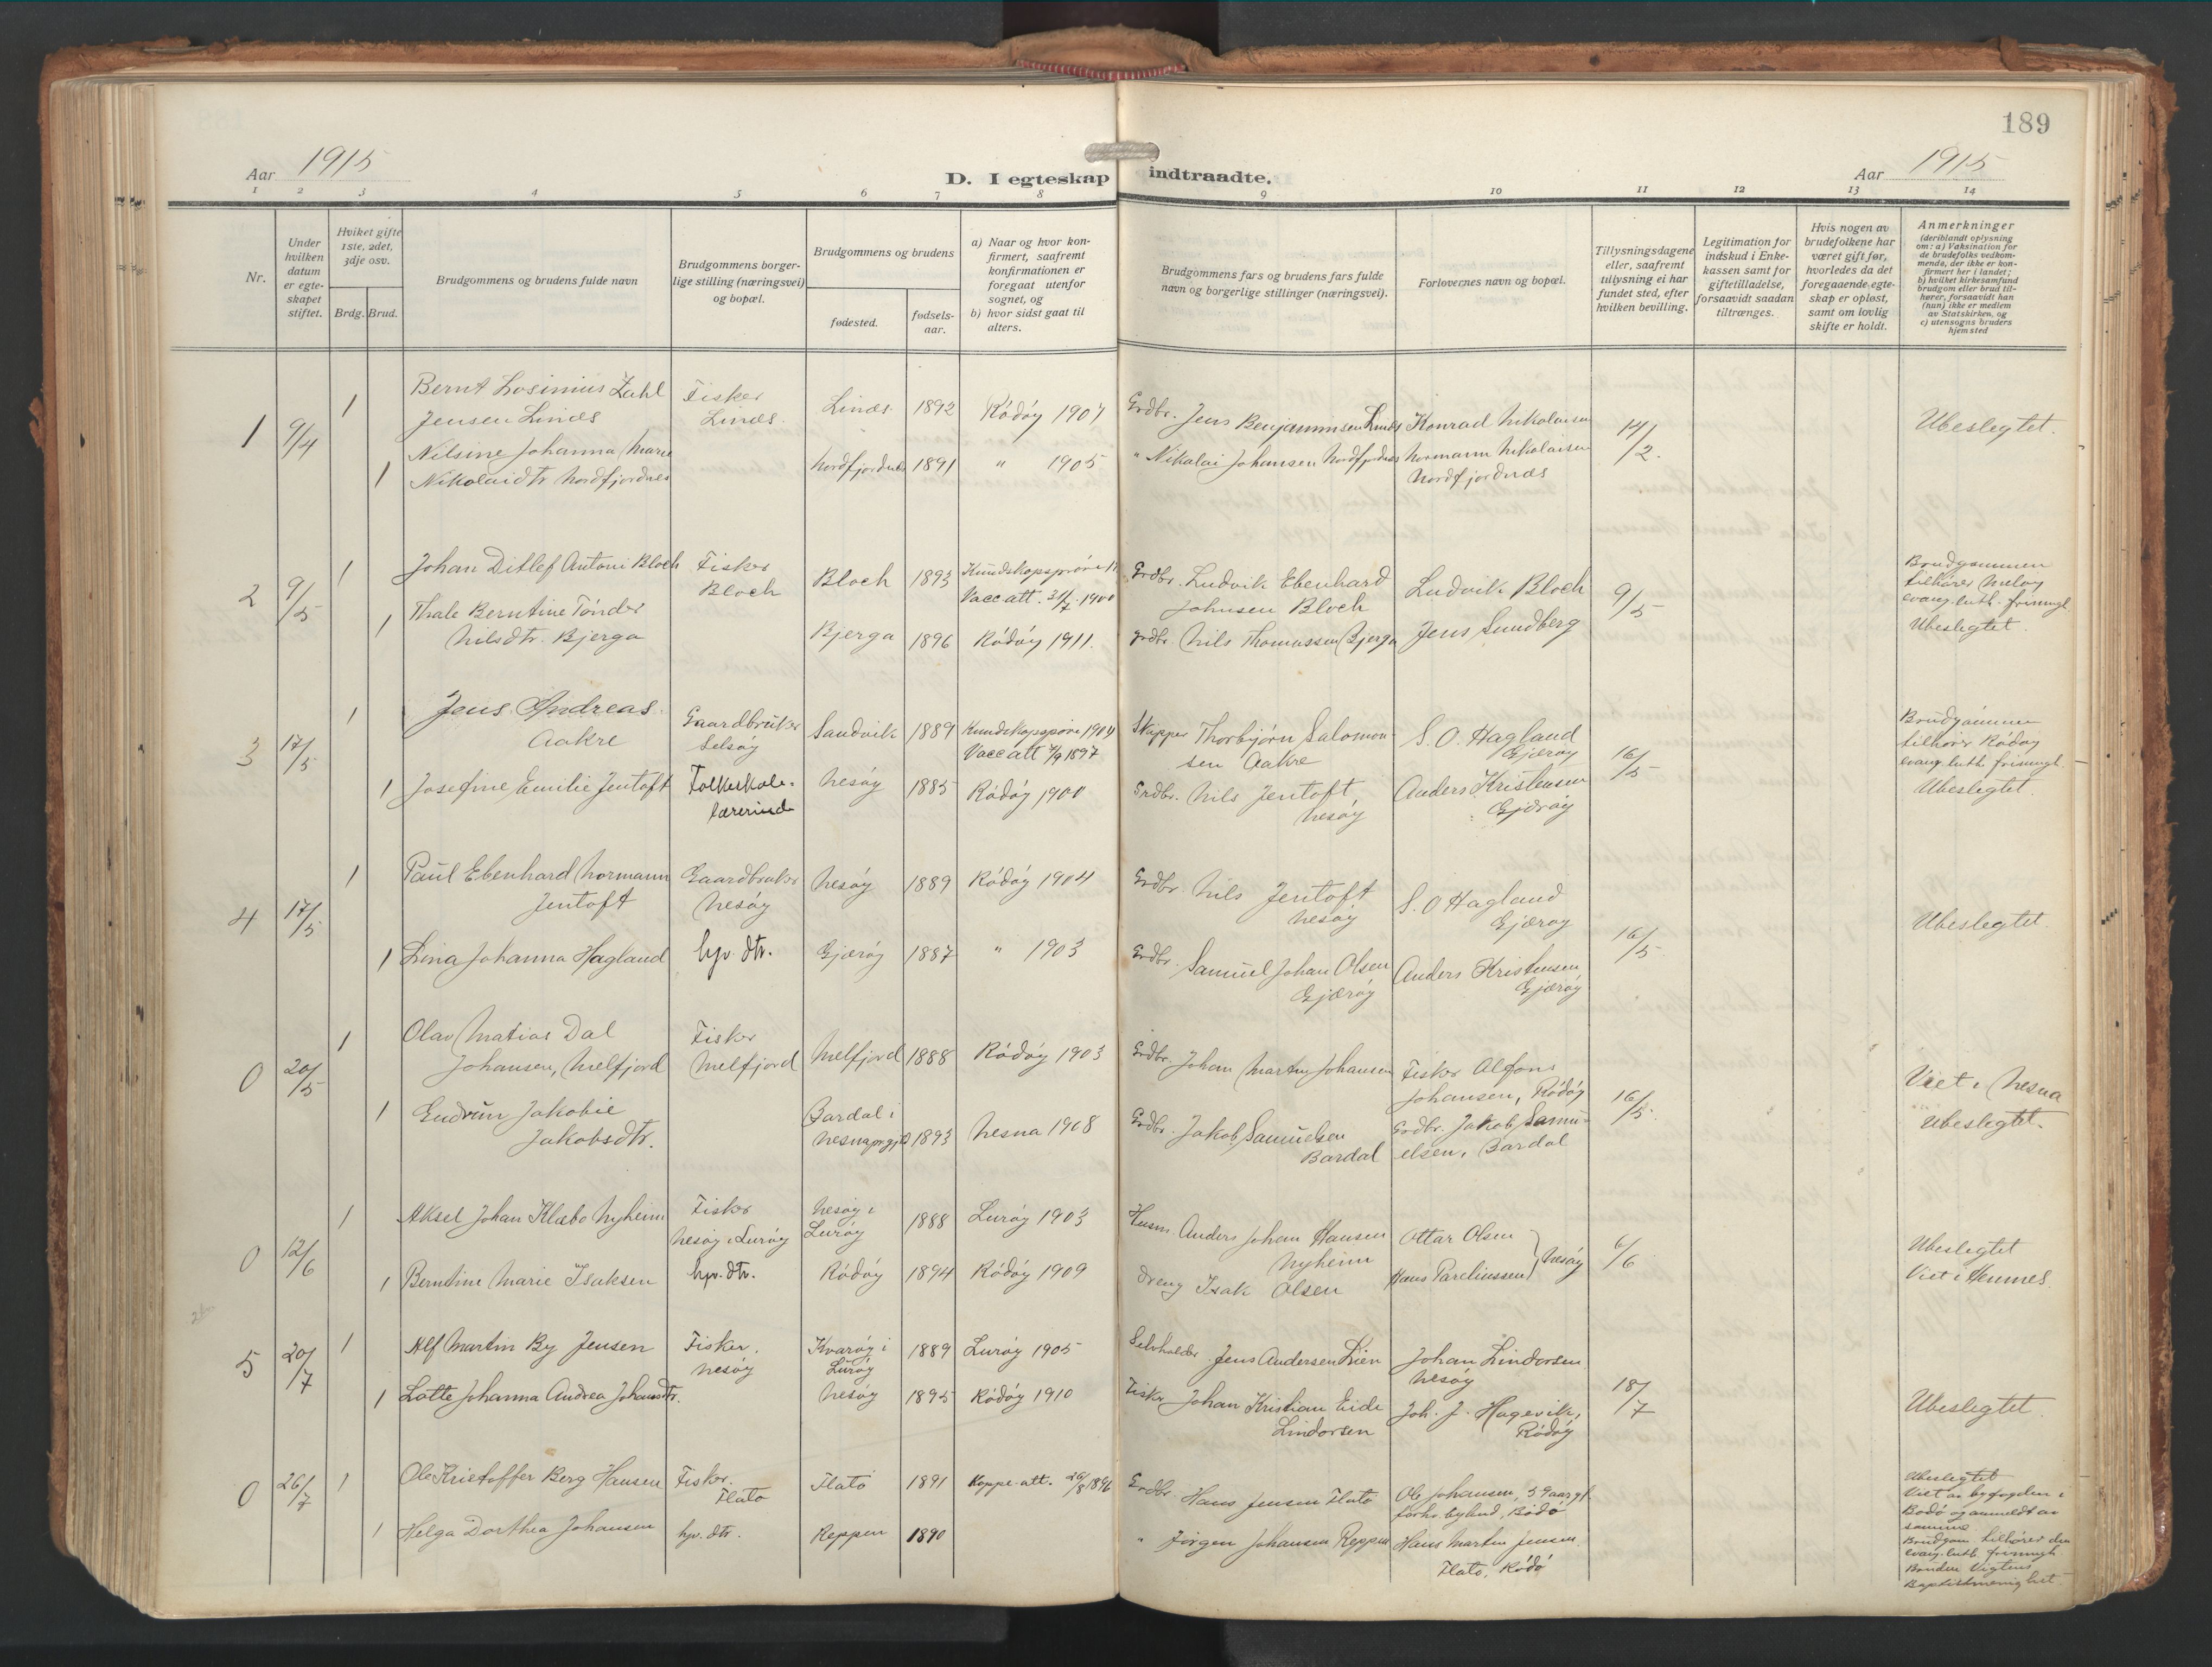 189
Aar 1915
D. I egteskap indtraadte.
Aar 1915
1 2 3 4 5 6 7 8 9 10 11 12 13 14
Nr.
Under hvilken datum er egteskapet stiftet.
Hviket gifte 1ste, 2det, 3dje osv.
Brdg. Brud.
Brudgommens og brudens fulde navn
Brudgommens borgerlige stilling (næringsvei) og bopæl.
Brudgommens og brudens
fødested.
fødselsaar.
a) Naar og hvor konfirmert, saafremt konfirmationen er foregaat utenfor sognet, og
b) hvor sidst gaat til alters.
Brudgommens fars og brudens fars fulde navn og borgerlige stillinger (næringsvei).
Forlovernes navn og bopæl.
Tillysningsdagene eller, saafremt tillysning ei har fundet sted, efter hvilken bevilling.
Legitimation for indskud i Enkekassen samt for giftetilladelse, forsaavidt saadan tiltrænges.
Hvis nogen av brudefolkene har været gift før, hvorledes da det foregaaende egteskap er opløst, samt om lovlig skifte er holdt.
Anmerkninger
(deriblandt oplysning om: a) Vaksination for de brudefolks vedkommende, der ikke er konfirmert her i landet; b) hvilket kirkesamfund brudgom eller brud tilhører, forsaavidt han (hun) ikke er medlem av Statskirken, og c) utensogns bruders hjemsted
1 9/4
1 Bernt Losinius Zahl Jensen Linæs
Fisker Linæs
Linæs 1892 Rødøy 1907
Grdbr. Jens Benjaminsen Linæs
Konrad Nikolaisen
14/2.
Ubeslegtet.
1 Nilsine Johanna Marie Nikolaidtr Nordfjordnes
Nordfjordnes 1891 " 1905
" Nikolai Johansen Nordfjordnes
Normann Nikolaisen Nordfjordnæs
2 9/5
1 Johan Ditlef Antoni Bloch
Fisker Bloch
Bloch 1893 Kundskapsprøve
Vacc att. 1900
Grdbr. Ludvik Ebenhard Johnsen Bloch
Ludvik Bloch
9/5
Brudgommen tilhører Meløy evang. luth. frimngt.
Ubeslegtet.
1 Thale Berntine Tønder Nilsdtr. Bjerga
Bjerga 1896 Rødøy 1911.
Grdbr. Nils Thomassen Bjerga
Jens Sundberg
3 17/5
1 Jens Andreas Aakre
Gaardbruker Selsøy
Sandvik 1889 Kundskapsprøve 1904
Vacc att 1897
Skipper Thorbjørn Salomonsen Aakre
S. O. Hagland Gjerøy
16/5
Brudgommen tilhører Rødøy evang. luth. frimngt.
Ubeslegtet.
1 Josefine Emilie Jentoft
Folkeskolelærerinde
Nesøy 1885 Rødøy 1900
Grdbr. Nils Jentoft Nesøy
Anders Kristensen Gjærøy
4 17/5
1 Paul Ebenhard Normann Jentoft
Gaardbruker Nesøy
Nesøy 1889 Rødøy 1904
Grdbr. Nils Jentoft Nesøy
S. O Hagland Gjærøy
16/5
Ubeslegtet.
1 Lina Johanna Hagland
hjv. dtr.
Gjærøy 1887 " 1903
Grdbr. Samuel Johan Olsen Gjærøy
Anders Kristensen Gjærøy
0 20/5
1 Olav Matias Dal Johansen, Melfjord
Fisker Melfjord
Melfjord 1888 Rødøy 1903
Grdbr. Johan Martin Johansen
Fisker Alfons Johansen, Rødøy
16/5.
Viet i Nesna
Ubeslegtet.
1 Gudrun Jakobie Jakobsdtr.
Bardal i Nesna prgjd 1893 Nesna 1908
Grdbr. Jakob Samuelsen Bardal
Grdbr. Jakob Samuelsen, Bardal
0 12/6
1 Aksel Johan Klæbo Nyheim
Fisker Nesøy i Lurøy
Nesøy i Lurøy 1888 Lurøy 1903
Husm. Anders Johan Hansen Nyheim
Ottar Olsen
6/6
Ubeslegtet
Viet i Hemnes.
1 Berntine Marie Isaksen
hjv. dtr.
Rødøy 1894 Rødøy 1909
Dreng Isak Olsen
Hans Pareliussen } Nesøy
5 20/7
1 Alf Martin By Jensen
Fisker, Nesøy
Kvarøy i Lurøy 1889 Lurøy 1905
Selvholder Jens Andersen Lien
Johan Lindorsen Nesøy
18/7
Ubeslegtet
1 Lotte Johanna Andrea Johansdtr.
Nesøy 1895 Rødøy 1910
Fisker Johan Kristian Eide Lindorsen
Joh. J. Hagevik, Rødøy
0 26/7
1 Ole Kristoffer Berg Hansen
Fisker. Flatø
Flatø 1891 Koppe-att. 26/8 1896
Grdbr. Hans Jensen Flatø
Ole Johansen, 59 aar gl. forhv. bybud, Bodø
Ubeslegtet
Viet av byfogden i Bodø og anmeldt av samme
Brudgom. tilhører den evang. luth. frimngt.
Bruden Vigtens Baptistmenighet
1 Helga Dorthea Johansen
hjv. dtr.
Reppen 1890
" Jørgen Johansen Reppen
Hans Martin Jensen Flatø, Rødø